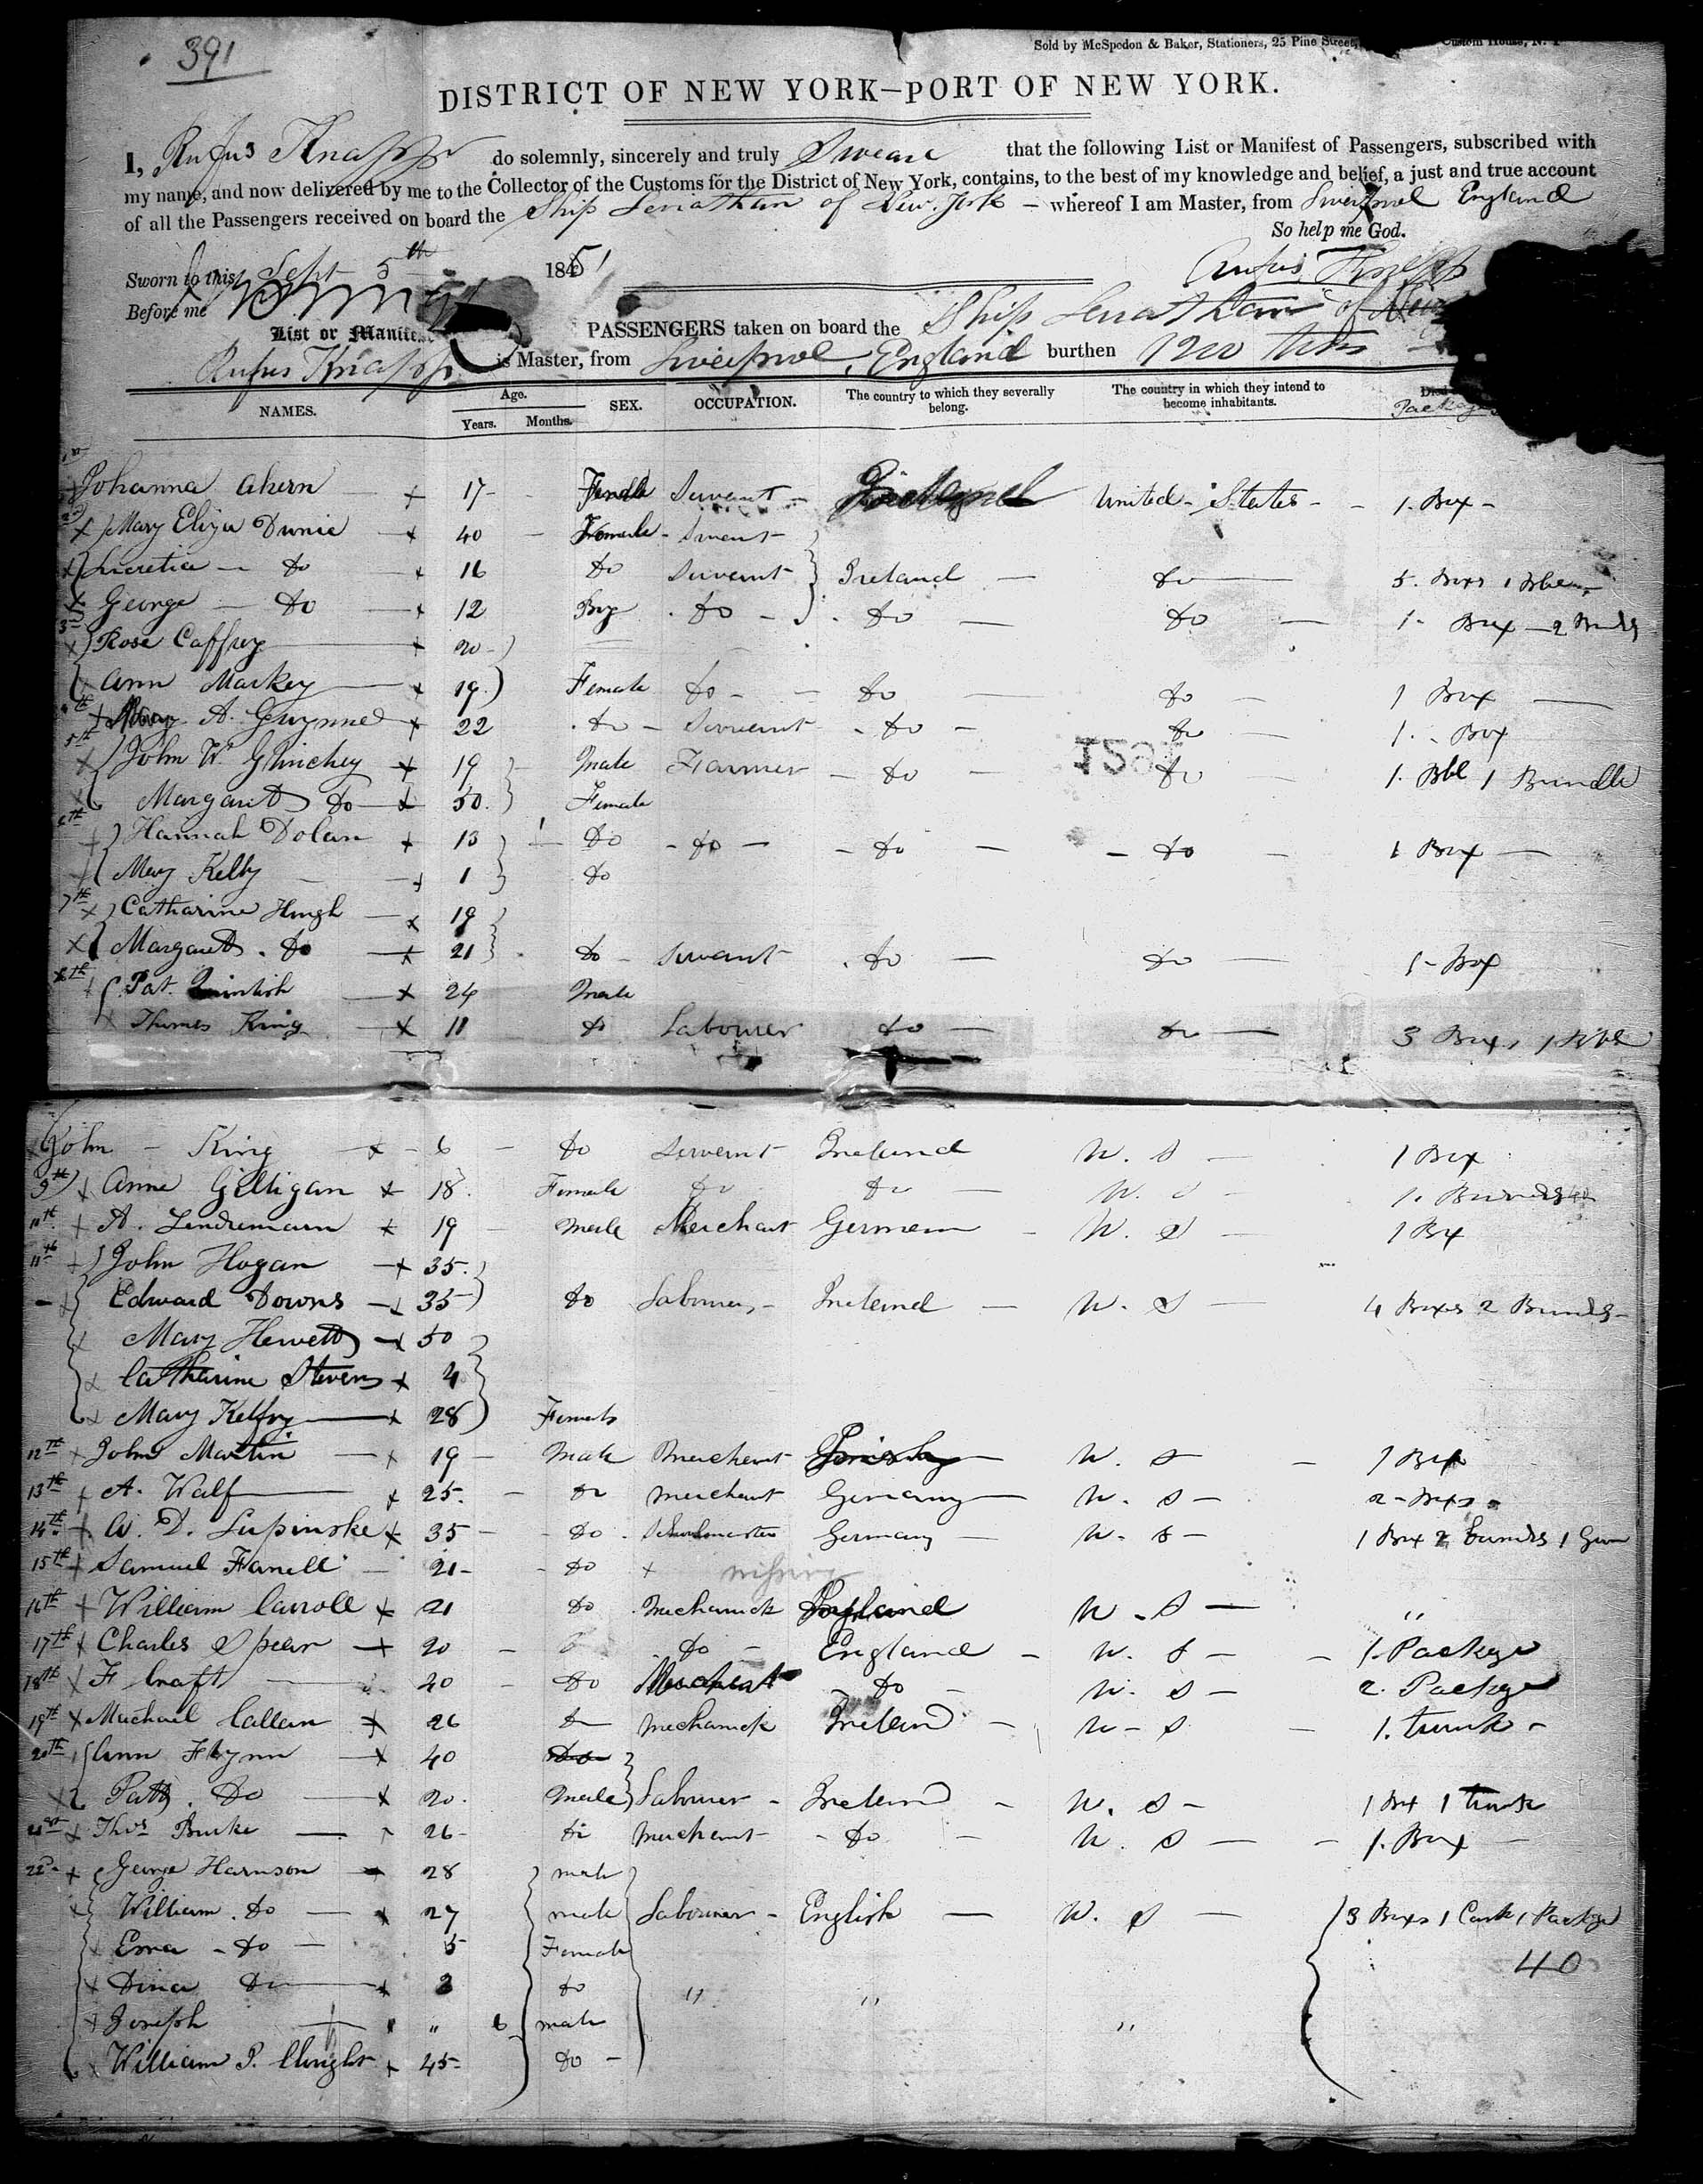 391
Sold by McSpedon & Baker, Stationers, 25 Pine Street, Custom House, N. Y
DISTRICT OF NEW YORK—PORT OF NEW YORK.
I, Rufus Knapp do solemnly, sincerely and truly Swear that the following List or Manifest of Passengers, subscribed with
my name, and now delivered by me to the Collector of the Customs for the District of New York, contains, to the best of my knowledge and belief, a just and true account
of all the Passengers received on board the Ship of New York — whereof I am Master, from Liverpool England
So help me God.
Sworn to this Sept 5th 1851 Rufus Knapp
Before me
List or Manifest PASSENGERS taken on board the Ship of New
Rufus Knapp is Master, from Liverpool, England burthen 1200 tons
NAMES. Age. Years. Months. SEX. OCCUPATION. The country to which they severally belong. The country in which they intend to become inhabitants. Died
Johanna Ahern 17 Female Servant United States 1. Box
Mary Eliza 40 Female Servant
Lucretia do 16 do Servant Ireland do 5. Boxes 1 Bbl
George do 12 Boy do do do 1. Box 2 Bundls
3d Rose Caffrey 20
Ann Markey 19 Female do do do 1 Box
Mary A. Gwynne 22 do Servant do do 1. Box
5th John W. 19 Male Farmer do do 1. Bbl 1 Bundle
Margaret do 50. Female
6th Hannah Dolan 13 do do do do 1 Box
Mary Kelly 1 do
7th Catharine Hugh 19
Margaret do 21 do Servant do do 1 Box
8th Pat. 24 Male
Thomas King 11 do Labourer do do 3 Boxes 1 Bbl
John King 6 do Servant Ireland U. S 1 Box
9th Anne Gilligan 18 Female do do U. S
10th A. Lindemann 19 Male Merchant German U. S 1 Bx
11th John Hogan 35.
Edward Downs 35 do Labourer Ireland U. S 4 Boxes 2 Bundls
Mary Hewett 50
Catharine Stevens 4
Mary 28 Female
12th John Martin 19 Male Merchant U. S 1 Box
13th A. Walf 25. do Merchant Germany U. S 2 Boxes
14th 35 do Schoolmaster Germany U. S 1 Box 2 bundls 1 Gun
15th Samuel Farrell 21 do missing
16th William Carroll 21 do Mechanick U. S "
17th Charles Spear 20 do England U. S 1. Packge
18th F Craft 40 do Merchant do U. S 2. Packge
19th Michael Callan 26 do Mechanick Ireland U. S 1. trunk
20th Ann Flynn 40 do
Patk. do 20. Male Labourer Ireland U. S 1 Bx 1 trunk
21st Thos Burke 26 do Merchant do U. S 1. Box
22d George Harrison 28 male
William do 27 male Labourer English U. S 3 Boxes 1 Cask 1 Packge
Emma do 5 Female 40
Dina do 2 do " "
Joseph " 6 male "
William P. 45 do